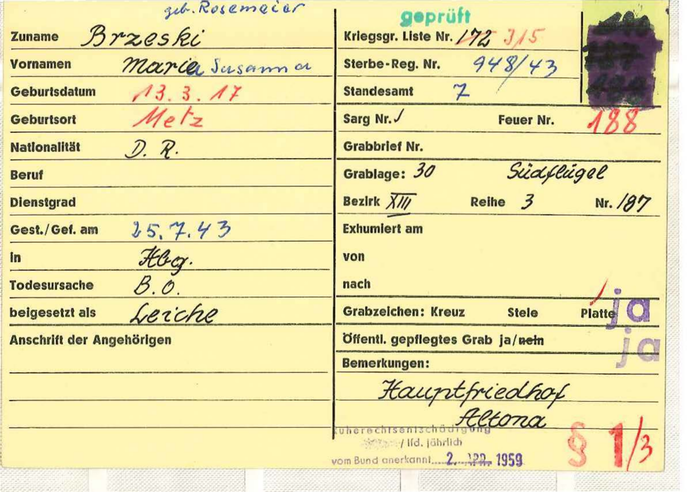 geb. Rosemeier
Zuname Brzeski
Vornamen Maria Susanna
Geburtsdatum 13.3.17
Geburtsort Metz
Nationalität D. R.
Beruf
Dienstgrad
Gest./Gef. am 25.7.43
in Hbg.
Todesursache B.O.
beigesetzt als Leiche
Anschrift der Angehörigen
geprüft
Kriegsgr. Liste Nr. 172 315
Sterbe-Reg. Nr. 948/43
Standesamt 7
Sarg Nr. Feuer Nr. 188
Grabbrief Nr.
Grablage: 30 Südflügel
Bezirk XIII Reihe 3 Nr. 187
Exhumiert am
von
nach
Grabzeichen: Kreuz Stele Platte ja
Öffentl. gepflegtes Grab ja/nein ja
Bemerkungen:
Hauptfriedhof
Altona
Ruherechtsentschädigung
/ lfd. jährlich
vom Bund anerkannt 2. APR. 1959
§ 1/3